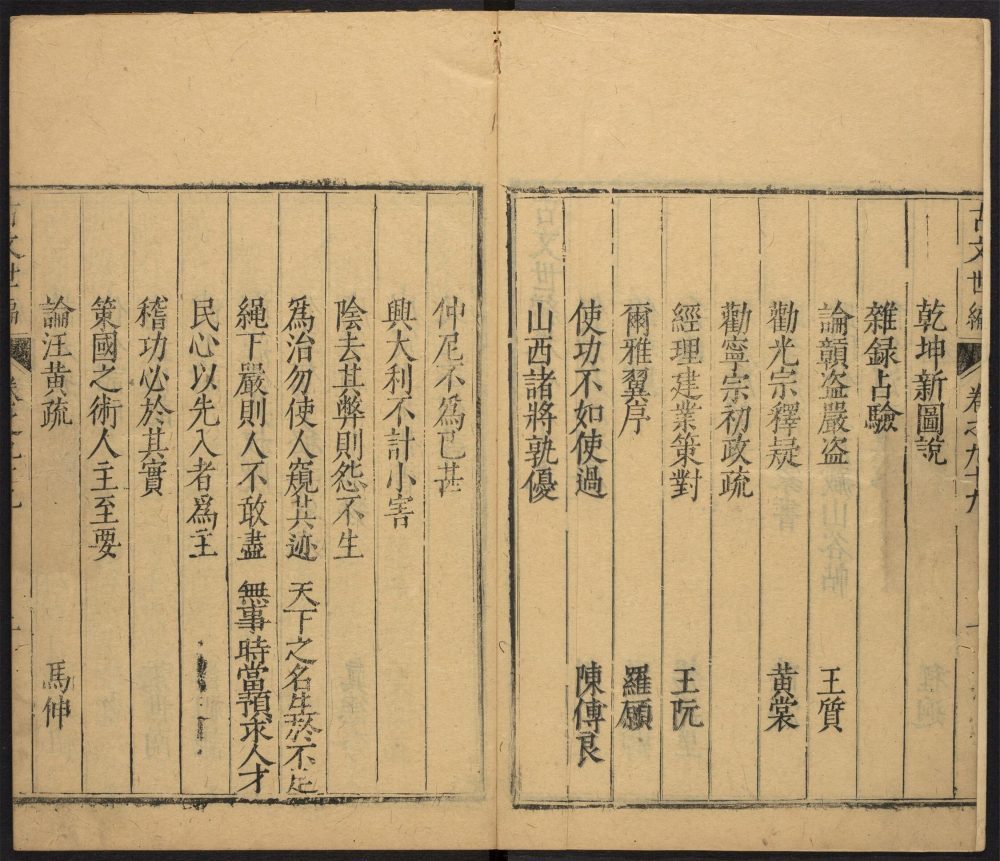 古文世編
卷之九十九
乾坤新圖說
雜録占驗
論贛盗嚴盗 王質
勸光宗釋疑 黄裳
勸寧宗初政疏
經理建業策對 王阮
爾雅翼序 羅願
使功不如使過 陳傅良
山西諸將孰優
仲尼不爲已甚
興大利不計小害
陰去其弊則怨不生
爲治勿使人窺其迹 天下之名生於不足
繩下嚴則人不敢盡 無事時當預求人才
民心以先入者爲主
稽功必於其實
策國之術人主至要
論汪黄疏 馬伸